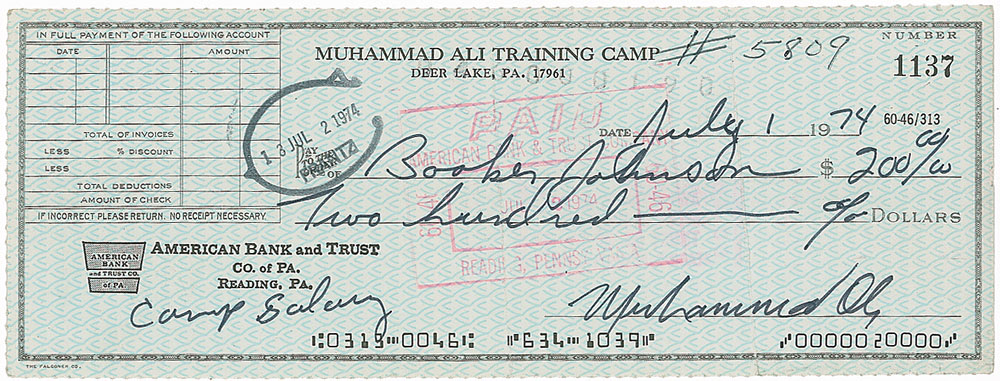 IN FULL PAYMENT OF THE FOLLOWING ACCOUNT
DATE AMOUNT
TOTAL OF INVOICES
LESS % DISCOUNT
LESS
TOTAL DEDUCTIONS
AMOUNT OF CHECK
IF INCORRECT PLEASE RETURN. NO RECEIPT NECESSARY
MUHAMMAD ALI TRAINING CAMP # 5809
DEER LAKE, PA. 17961
NUMBER
1137
DATE July 1 1974 60-46/313
13 JUL 2 1974
PAY TO THE ORDER OF Booker Johnson $ 200 00/00
Two hundred DOLLARS
PAID
AMERICAN BANK & TRUST
1974
READING, PENNSYLVANIA
AMERICAN BANK AND TRUST
CO. OF PA.
READING, PA.
AMERICAN
BANK
and TRUST CO.
of PA.
Camp Salary
Muhammad Ali
⑆0313⑉0046⑆ ⑈634⑉1039⑈ ⑈0000020000⑈
THE FALCONER CO.